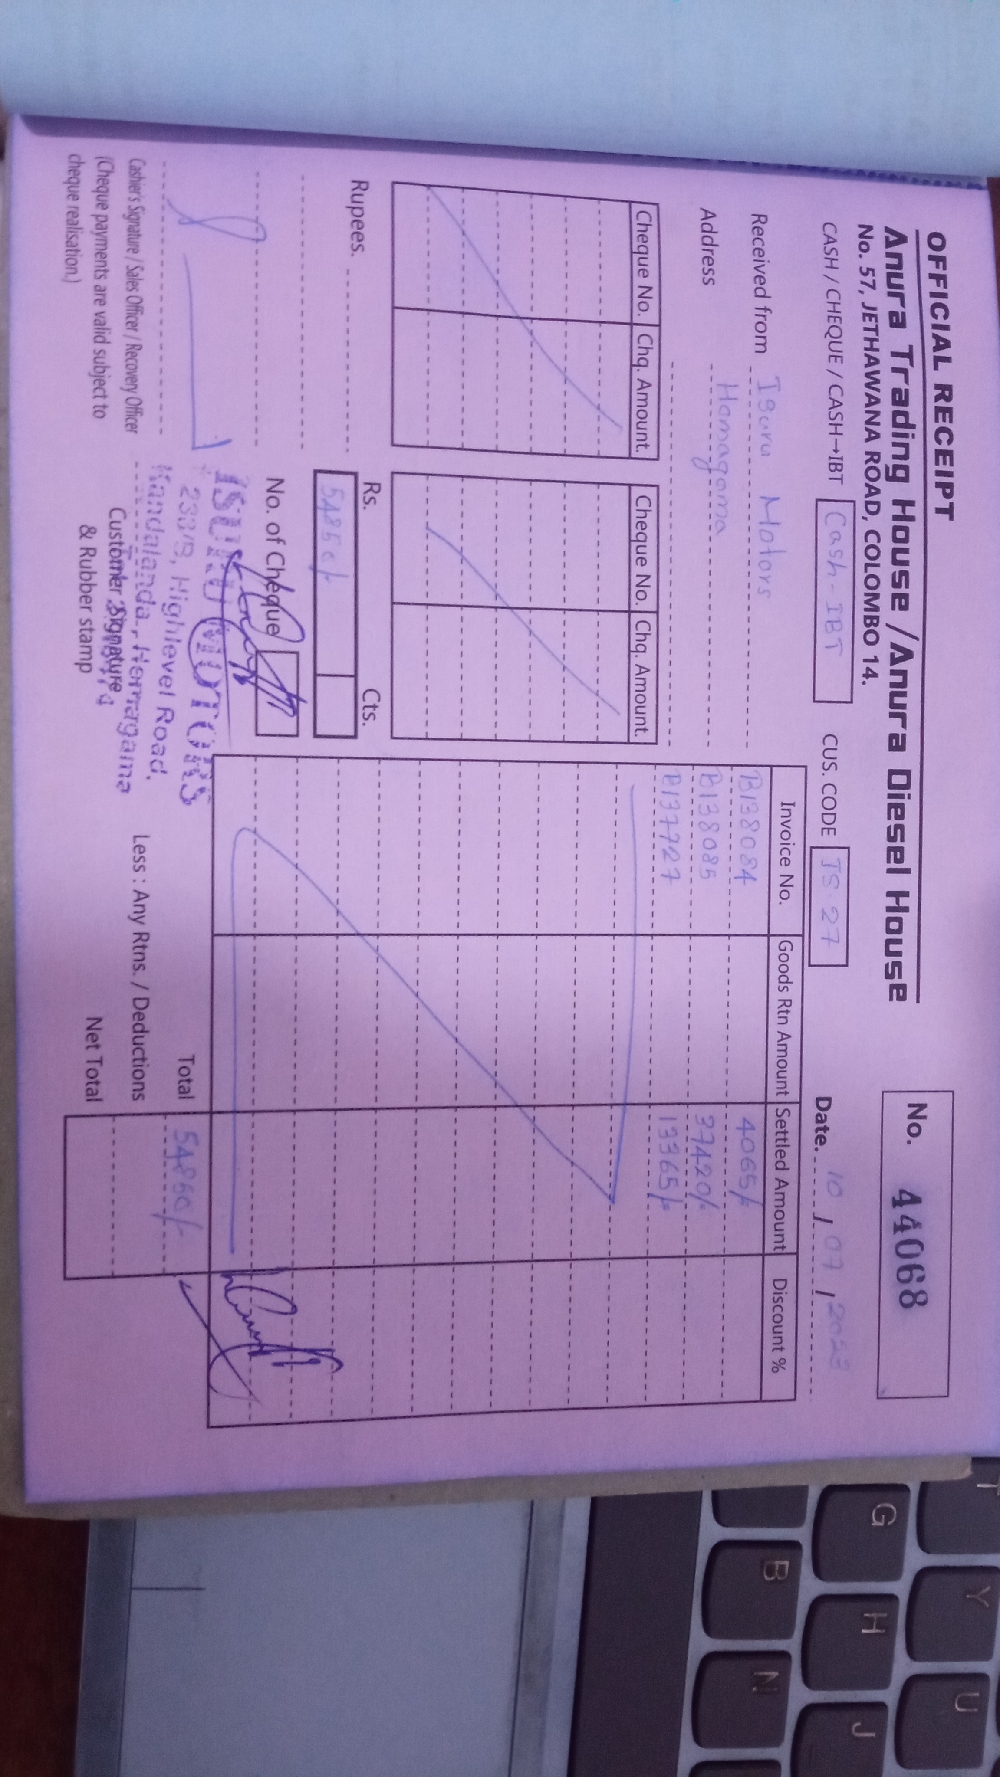 OFFICIAL RECEIPT
No. 44068
Anura Trading House / Anura Diesel House
No. 57, JETHAWANA ROAD, COLOMBO 14.
CASH / CHEQUE / CASH→IBT Cash-IBT CUS. CODE IS 27 Date. 10 / 07 /
Received from Isuru Motors
Address Homagama
Cheque No. Chq. Amount Cheque No. Chq. Amount
Invoice No. Goods Rtn Amount Settled Amount Discount %
B138084 4065/-
B138085 37420/-
B137727 13365/-
Rupees. Rs. Cts.
No. of Cheque
ISURU MOTORS
233/B, Highlevel Road,
Kandalanda, Homagama
Total 54850/-
Less : Any Rtns. / Deductions
Net Total
Casher's Signature / Sales Officer / Recovery Officer
(Cheque payments are valid subject to
cheque realisation.)
Customer Signature
& Rubber stamp
G
B
Y
H
N
U
J